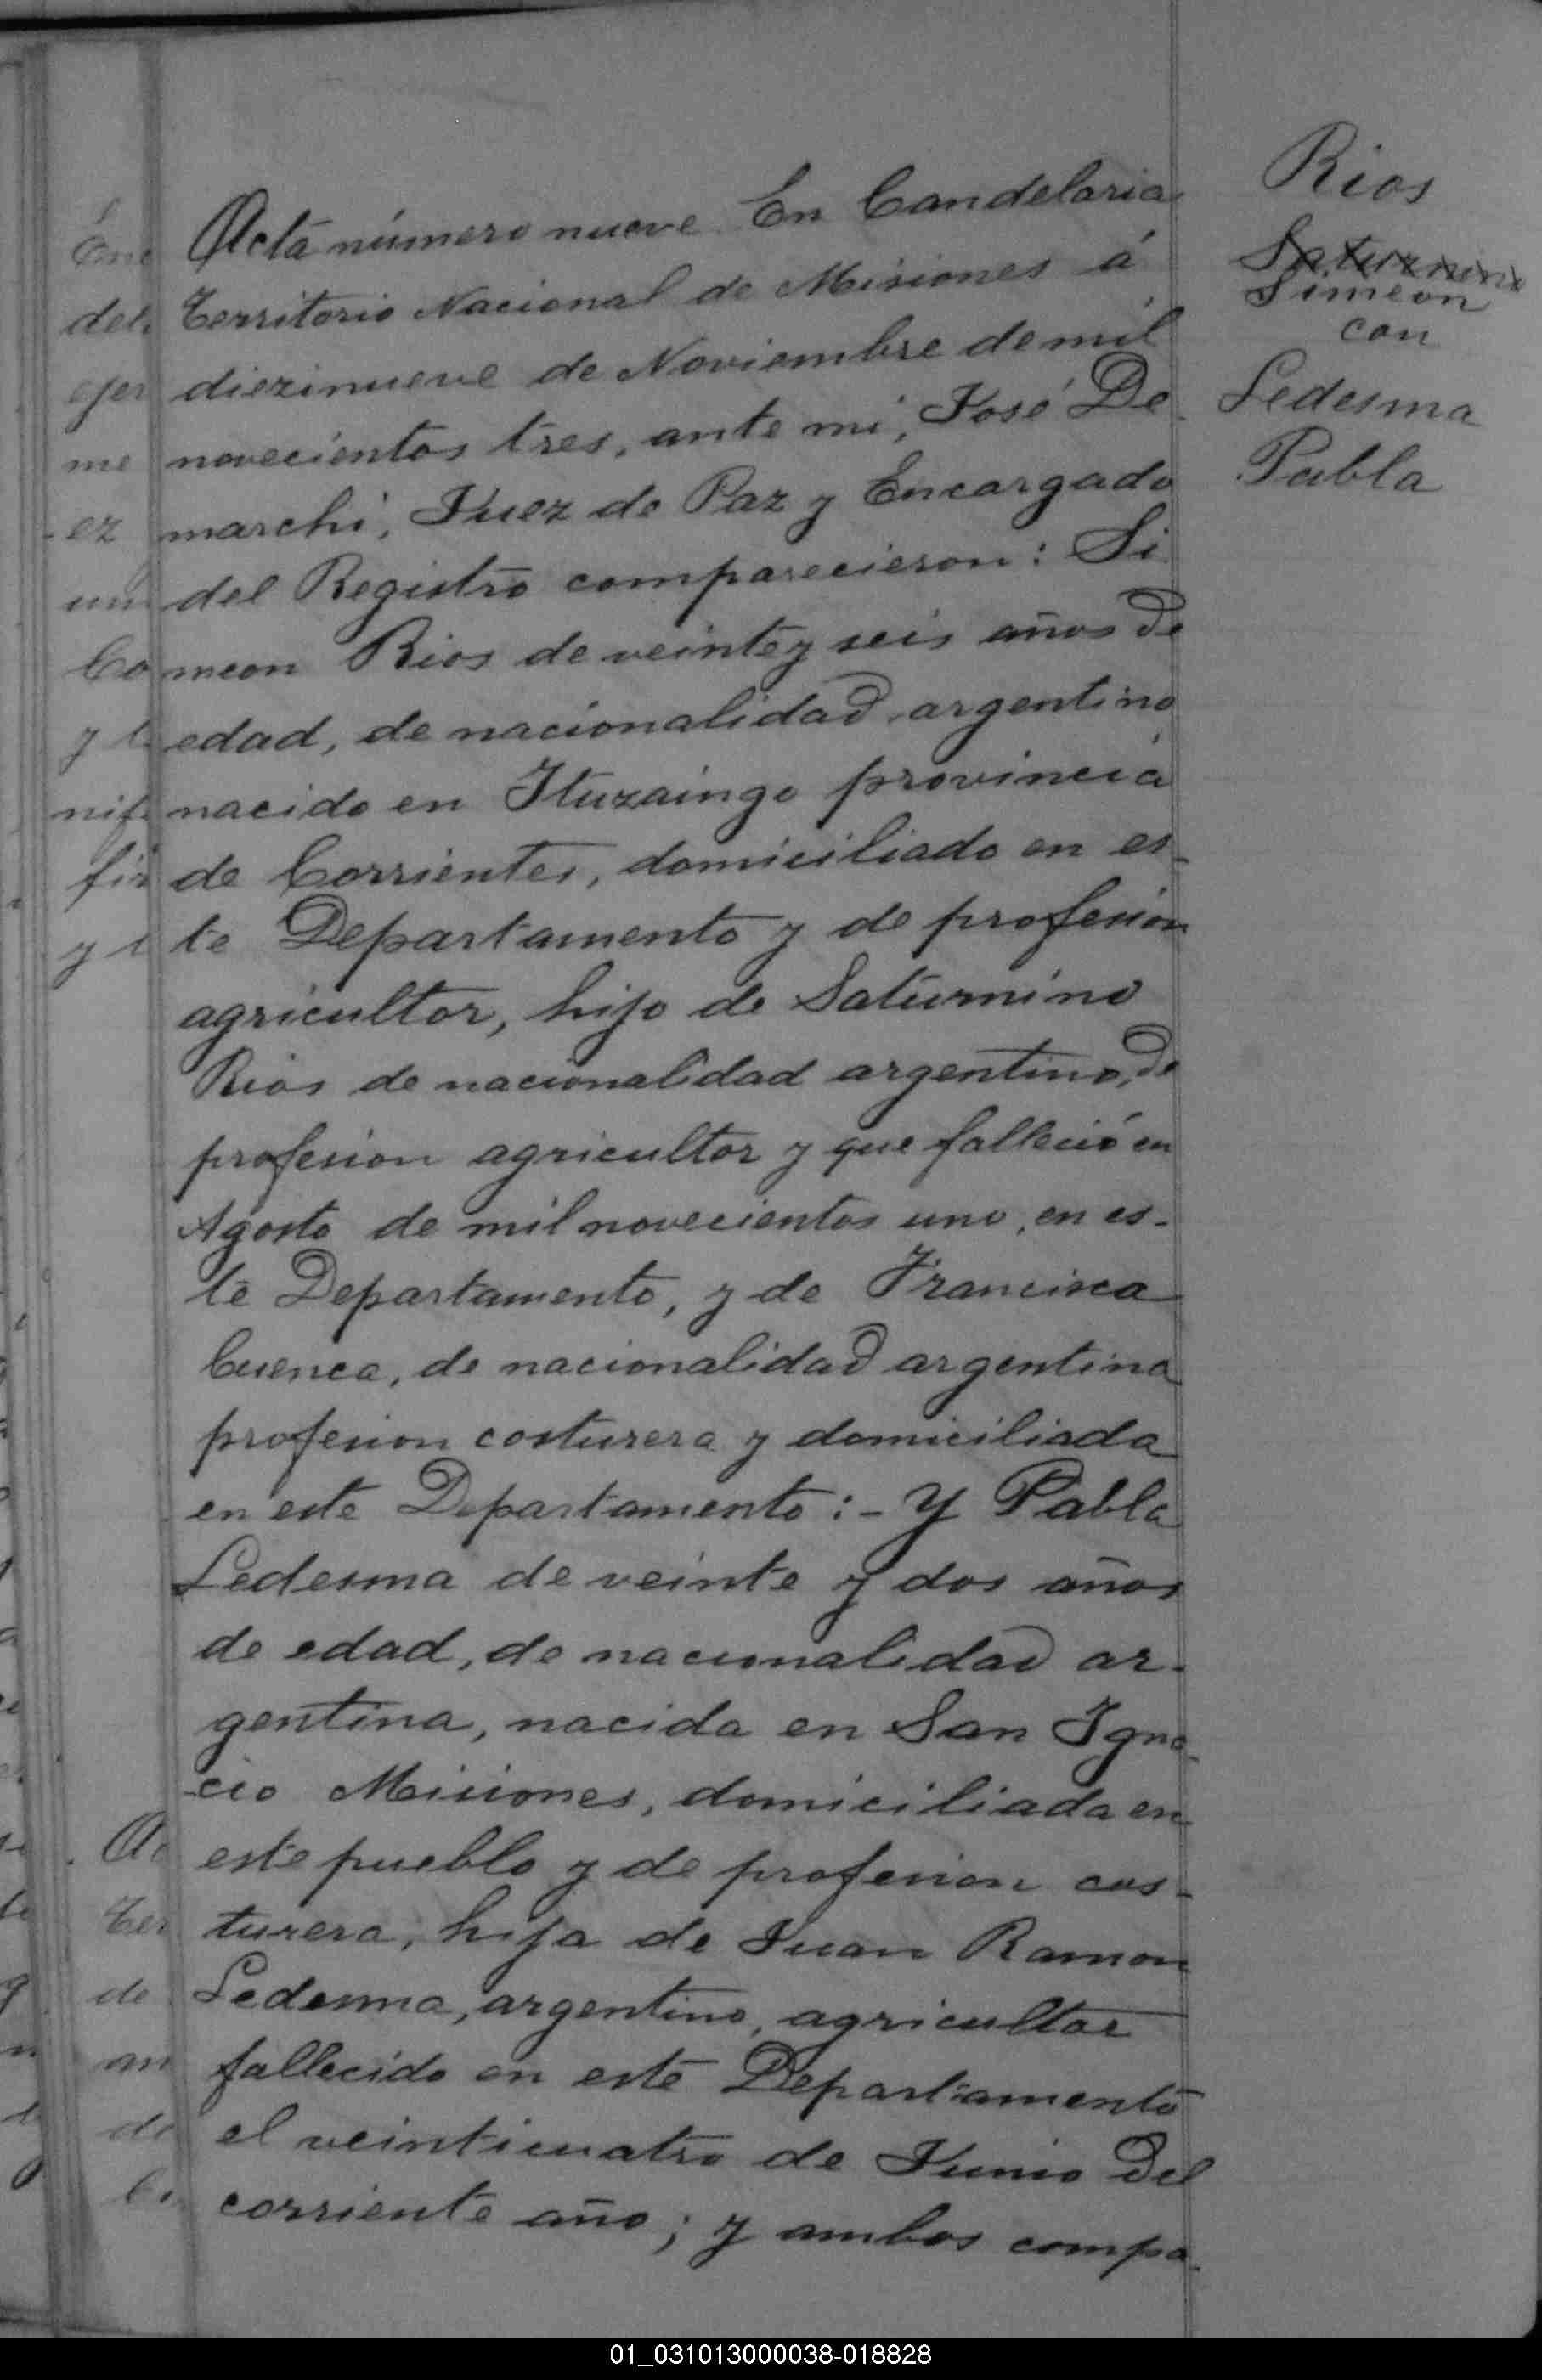 Acta número nueve. En Candelaria
Territorio Nacional de Misiones á
diezinueve de Noviembre de mil
novecientos tres, ante mi, José De
marchi, Juez de Paz y Encargado
del Registro comparecieron: Si
meon Rios de veinte y seis años de
edad, de nacionalidad argentino
nacido en Ituzaingo provincia
de Corrientes, domiciliado en es-
te Departamento y de profesion
agricultor, hijo de Saturnino
Rios de nacionalidad argentino, de
profesion agricultor y que falleció en
Agosto de mil novecientos uno, en es-
te Departamento, y de Francisca
Cuenca, de nacionalidad argentina
profesion costurera y domiciliada
en este Departamento:- Y Pabla
Ledesma de veinte y dos años
de edad, de nacionalidad ar-
gentina, nacida en San Igna-
cio Misiones, domiciliada en
este pueblo y de profesion cos-
turera, hija de Juan Ramon
Ledesma, argentino, agricultor
fallecido en este Departamento
el veinticuatro de Junio del
corriente año; y ambos compa-
Rios
Saturnino
Simeon
con
Ledesma
Pabla
01_031013000038-018828